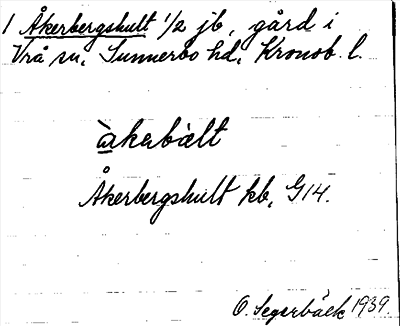 1 Åkerbergshult 1/2 jb, gård i
Vrå sn, Sunnerbo hd, Kronob. l.
àkabælt
Åkerbergshult kb, G14.
O. Segerbäck 1939.